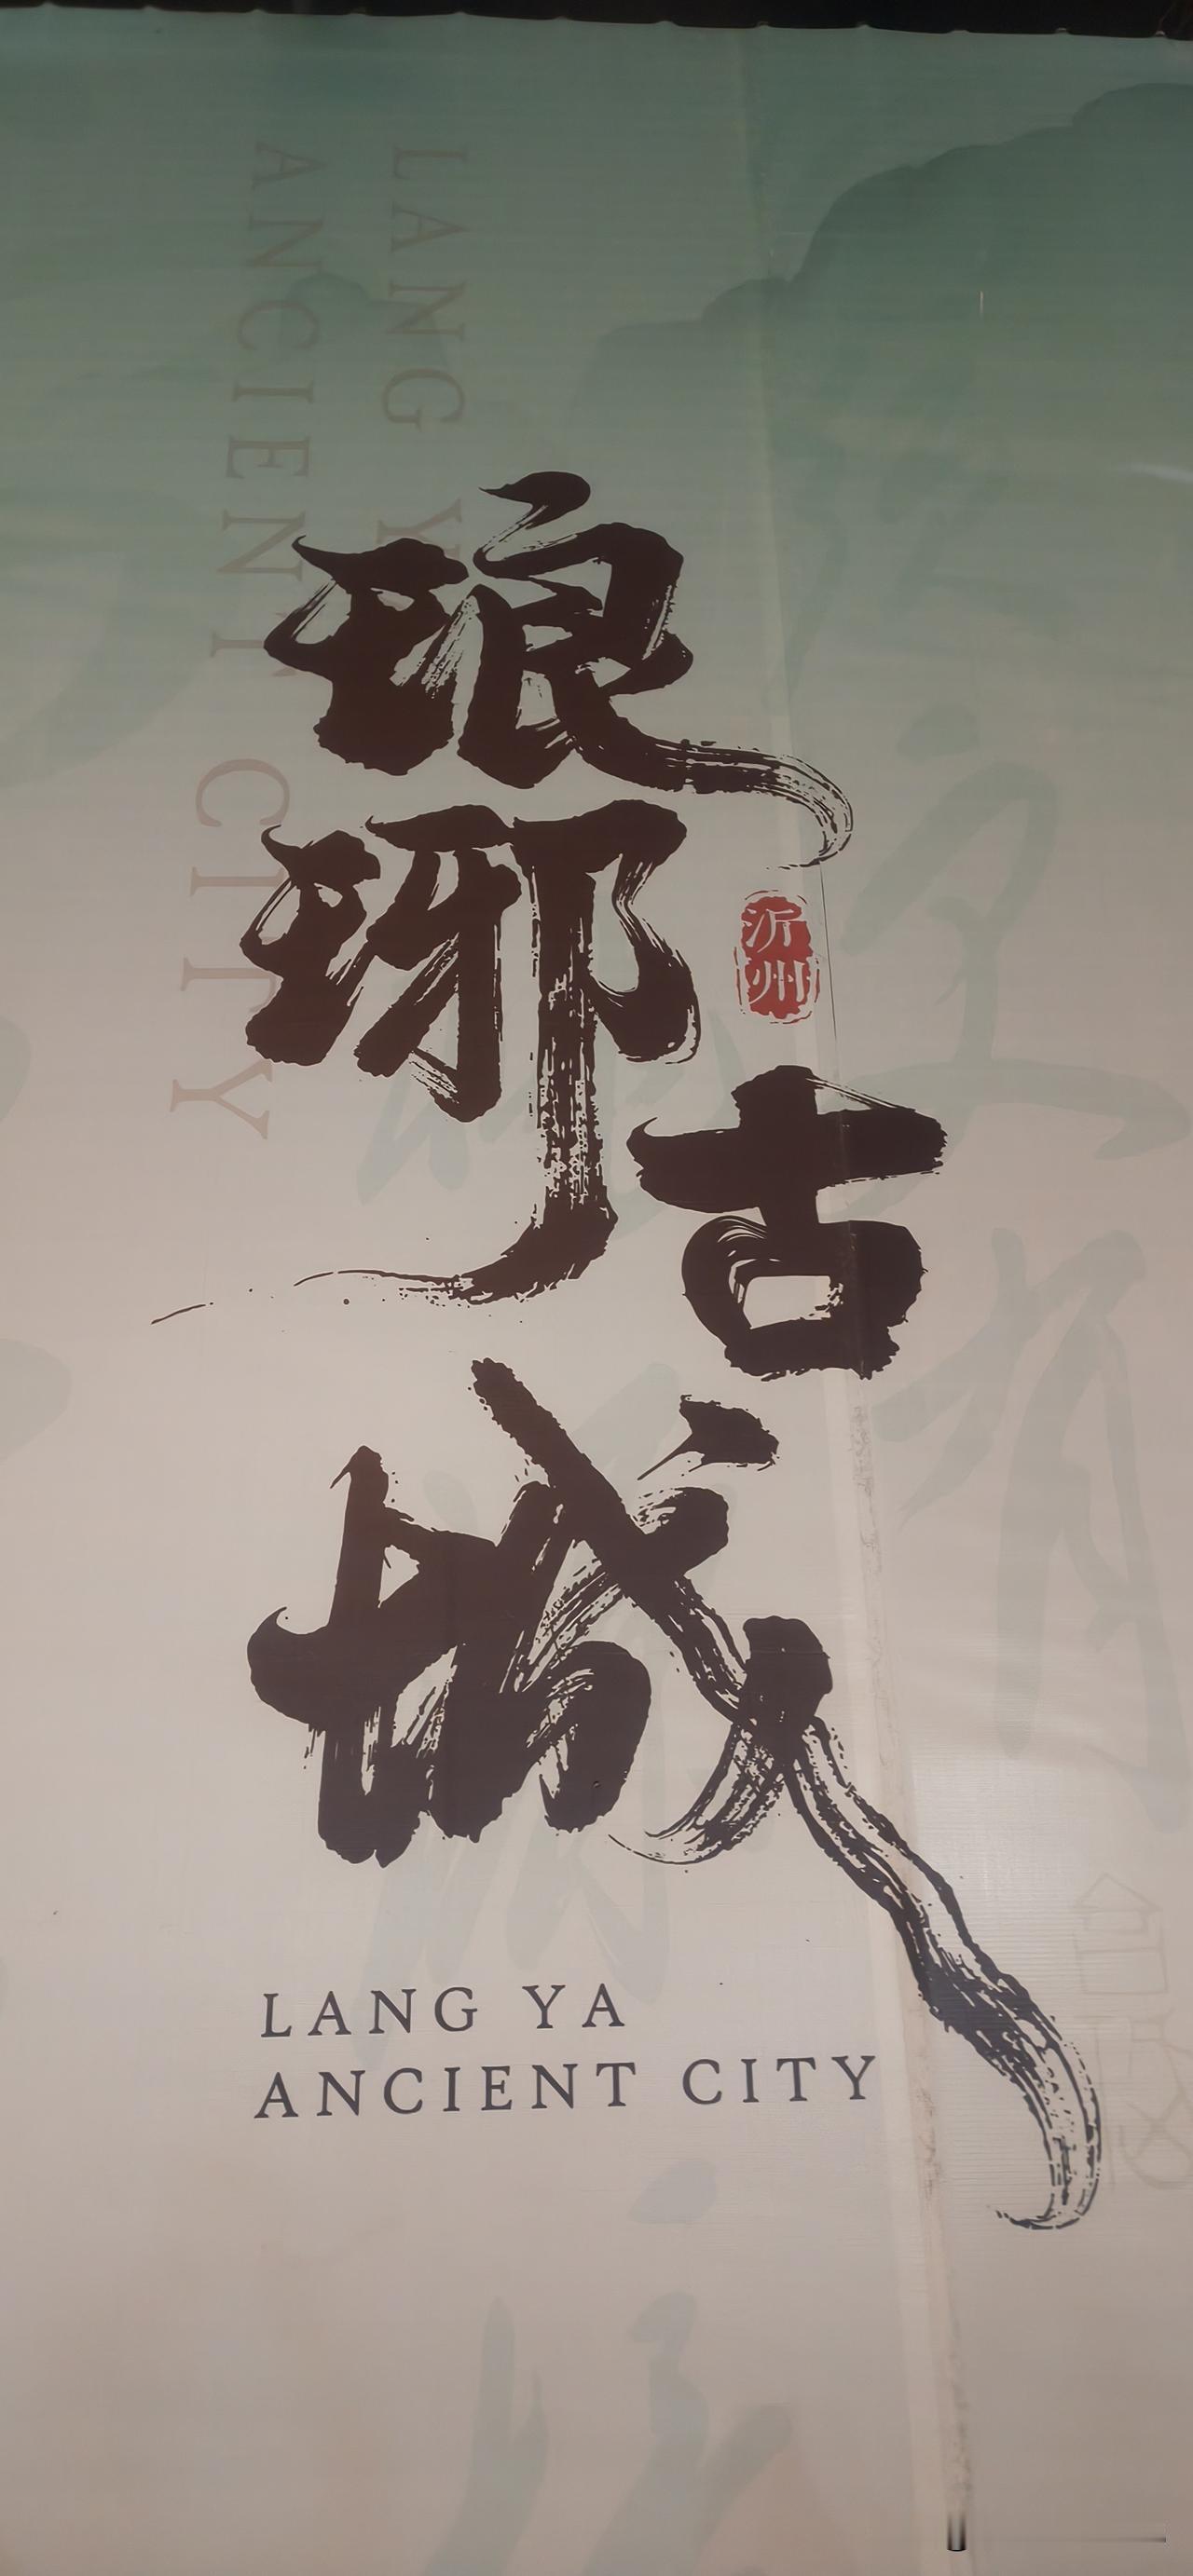 LANG YA
ANCIENT CITY
琅琊
沂州
古城
LANG YA
ANCIENT CITY